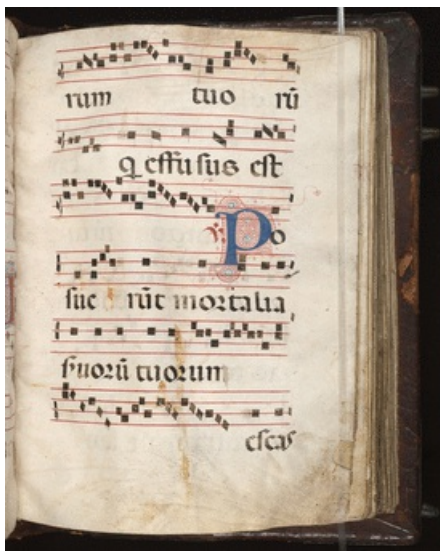 rum tuo rū
q effusus est
Po
sue rūt mortalia
suorū tuorum
escas